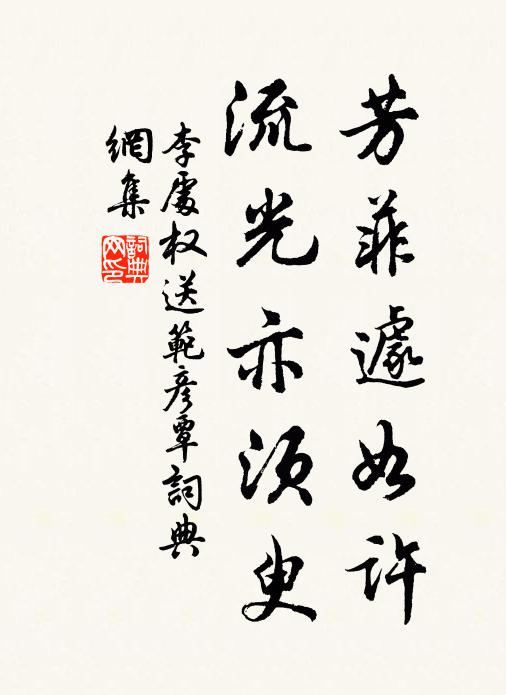 芳菲遽如許
流光亦須臾
李處权送範彥覃詞典
網集
詞典网印